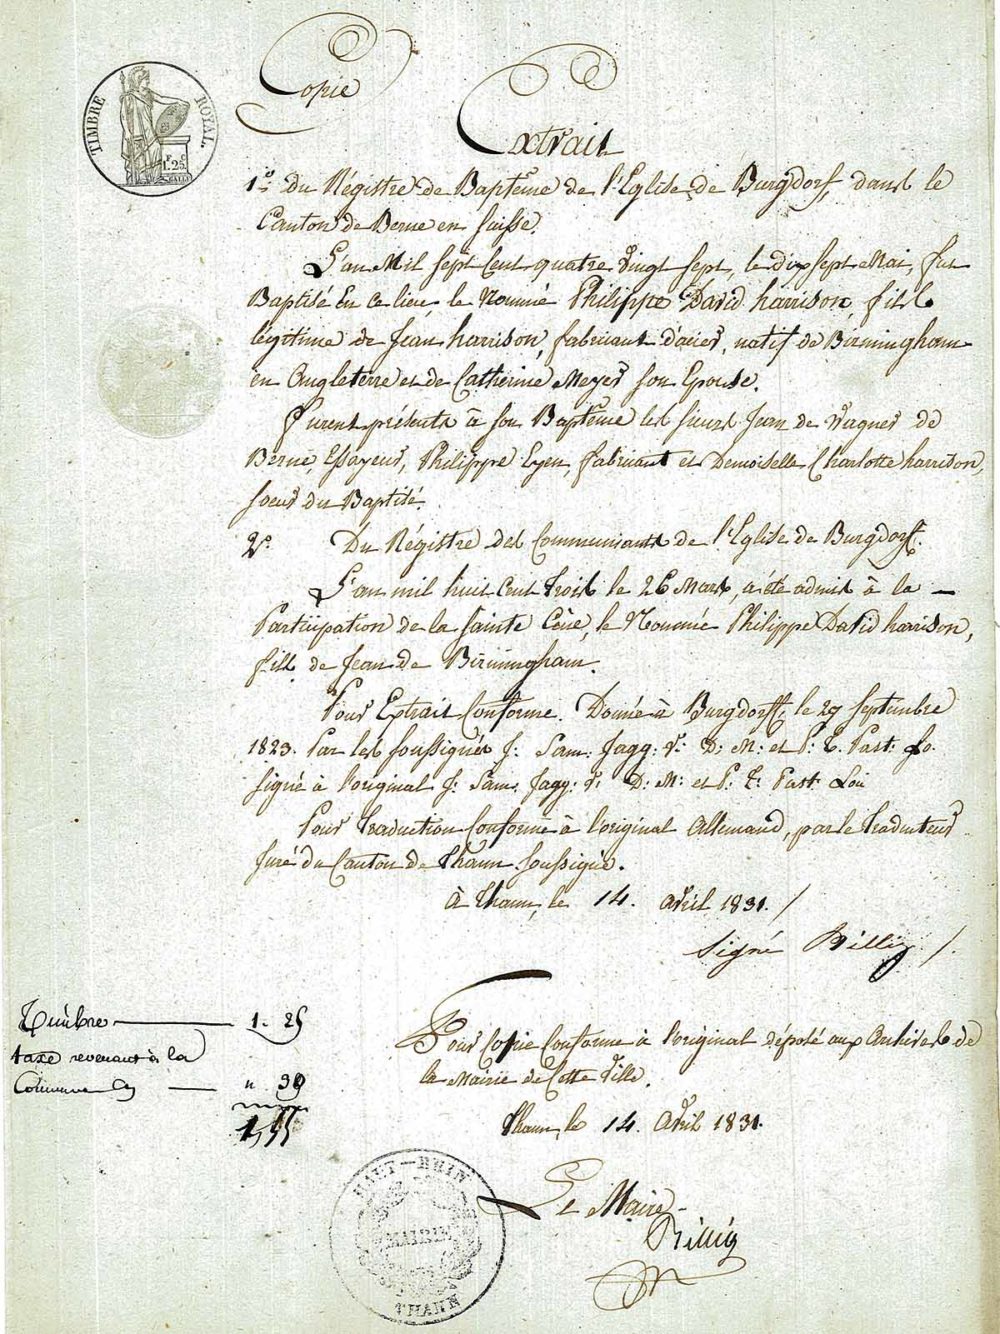 TIMBRE ROYAL.
1.F 25.C
Copie
Extrait
1.º Du Régistre de Baptême de l'Eglise de Burgdorf, dans le
Canton de Berne en Suisse.
L'an Mil Sept Cent quatre Vingt Sept, le dix Sept Mai, fut
Baptisé En ce lieu le Nommé Philippe David harrison, fils
légitime de Jean harrison, fabricant d'acier, natif de Birmingham
en Angleterre et de Catherine Meyer son Epouse.
Furent présents à son Baptême les Sieurs Jean de Wagner de
Berne, Essayeur, Philippe Eyen, fabricant et Demoiselle Charlotte harrison,
soeur du Baptisé.
2.º Du Régistre des Communiants de l'Eglise de Burgdorff.
L'an mil huit Cent trois le 26 Mars, a été admis à la —
Participation de la Sainte Cène, le Nommé Philippe David harrison,
fils de Jean de Birmingham.
Pour Extrait Conforme. Donné à Burgdorff, le 29 Septembre
1823. Par les Soussignés J: Sam: Jagg: V: D: M: et P: T: Past:
signé à l'original J: Sam: Jagg: V: D: M: et P: T: Past:
Pour Traduction Conforme à l'original Allemand, par le Traducteur
Juré du Canton de Thann Soussigné.
à Thann, le 14. Avril 1831. /
Signé Billig /.
Timbre — 1. 25
taxe revenant à la
Commune — " 30
1,55
Pour Copie Conforme à l'original déposé aux Archives de
la Mairie de Cette Ville.
Thann, le 14. Avril 1831.
Le Maire
HAUT-RHIN
MAIRIE
THANN